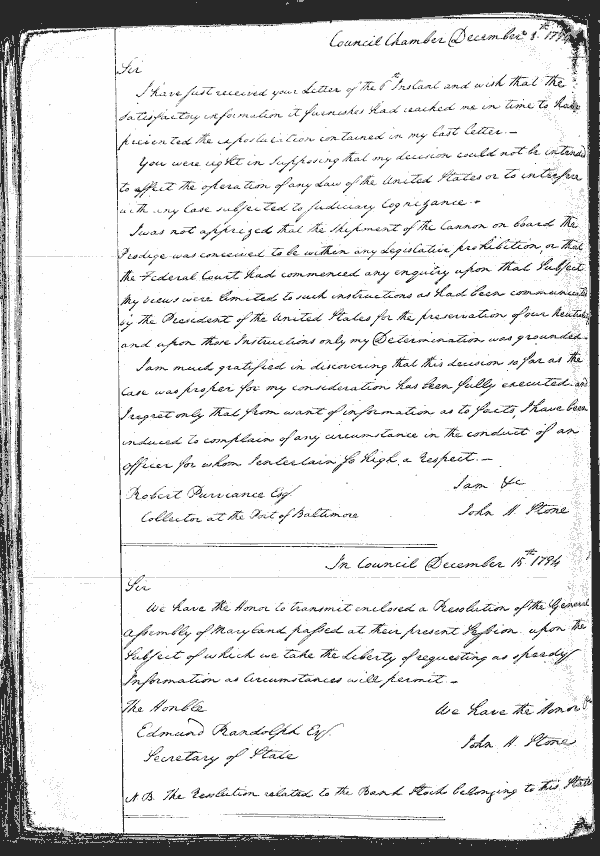 Council Chamber December 1794
Sir
I have just received your Letter of the 6th Instant and wish that the
satisfactory information it furnishes had reached me in time to have
prevented the expostulation contained in my last letter.—
You were right in supposing that my decision could not be intended
to affect the operation of any Law of the United States or to interfere
with any Case subjected to Judiciary Cognizance.
I was not apprized that the Shipment of the Cannon on board the
Prodige was conceived to be within any Legislative prohibition, or that
the Federal Court had commenced any enquiry upon that Subject
My views were limited to such instructions as had been communicated
by the President of the United States for the preservation of our Neutrality
and upon those Instructions only my Determination was grounded.
I am much gratified in discovering that this decision so far as the
Case was proper for my consideration has been fully executed and
I regret only that from want of information as to facts, I have been
induced to complain of any circumstance in the conduct of an
officer for whom I entertain so high a respect.—
I am &c
Robert Purviance Esqr
John H. Stone
Collector at the Port of Baltimore
In Council December 15th 1794
Sir
We have the Honor to transmit enclosed a Resolution of the General
Assembly of Maryland passed at their present Session upon the
Subject of which we take the Liberty of requesting as speedy
Information as Circumstances will permit.—
The Honble
We have the Honor &c
Edmund Randolph Esqr
John H. Stone
Secretary of State
N B. The Resolution related to the Bank Stock belonging to this State